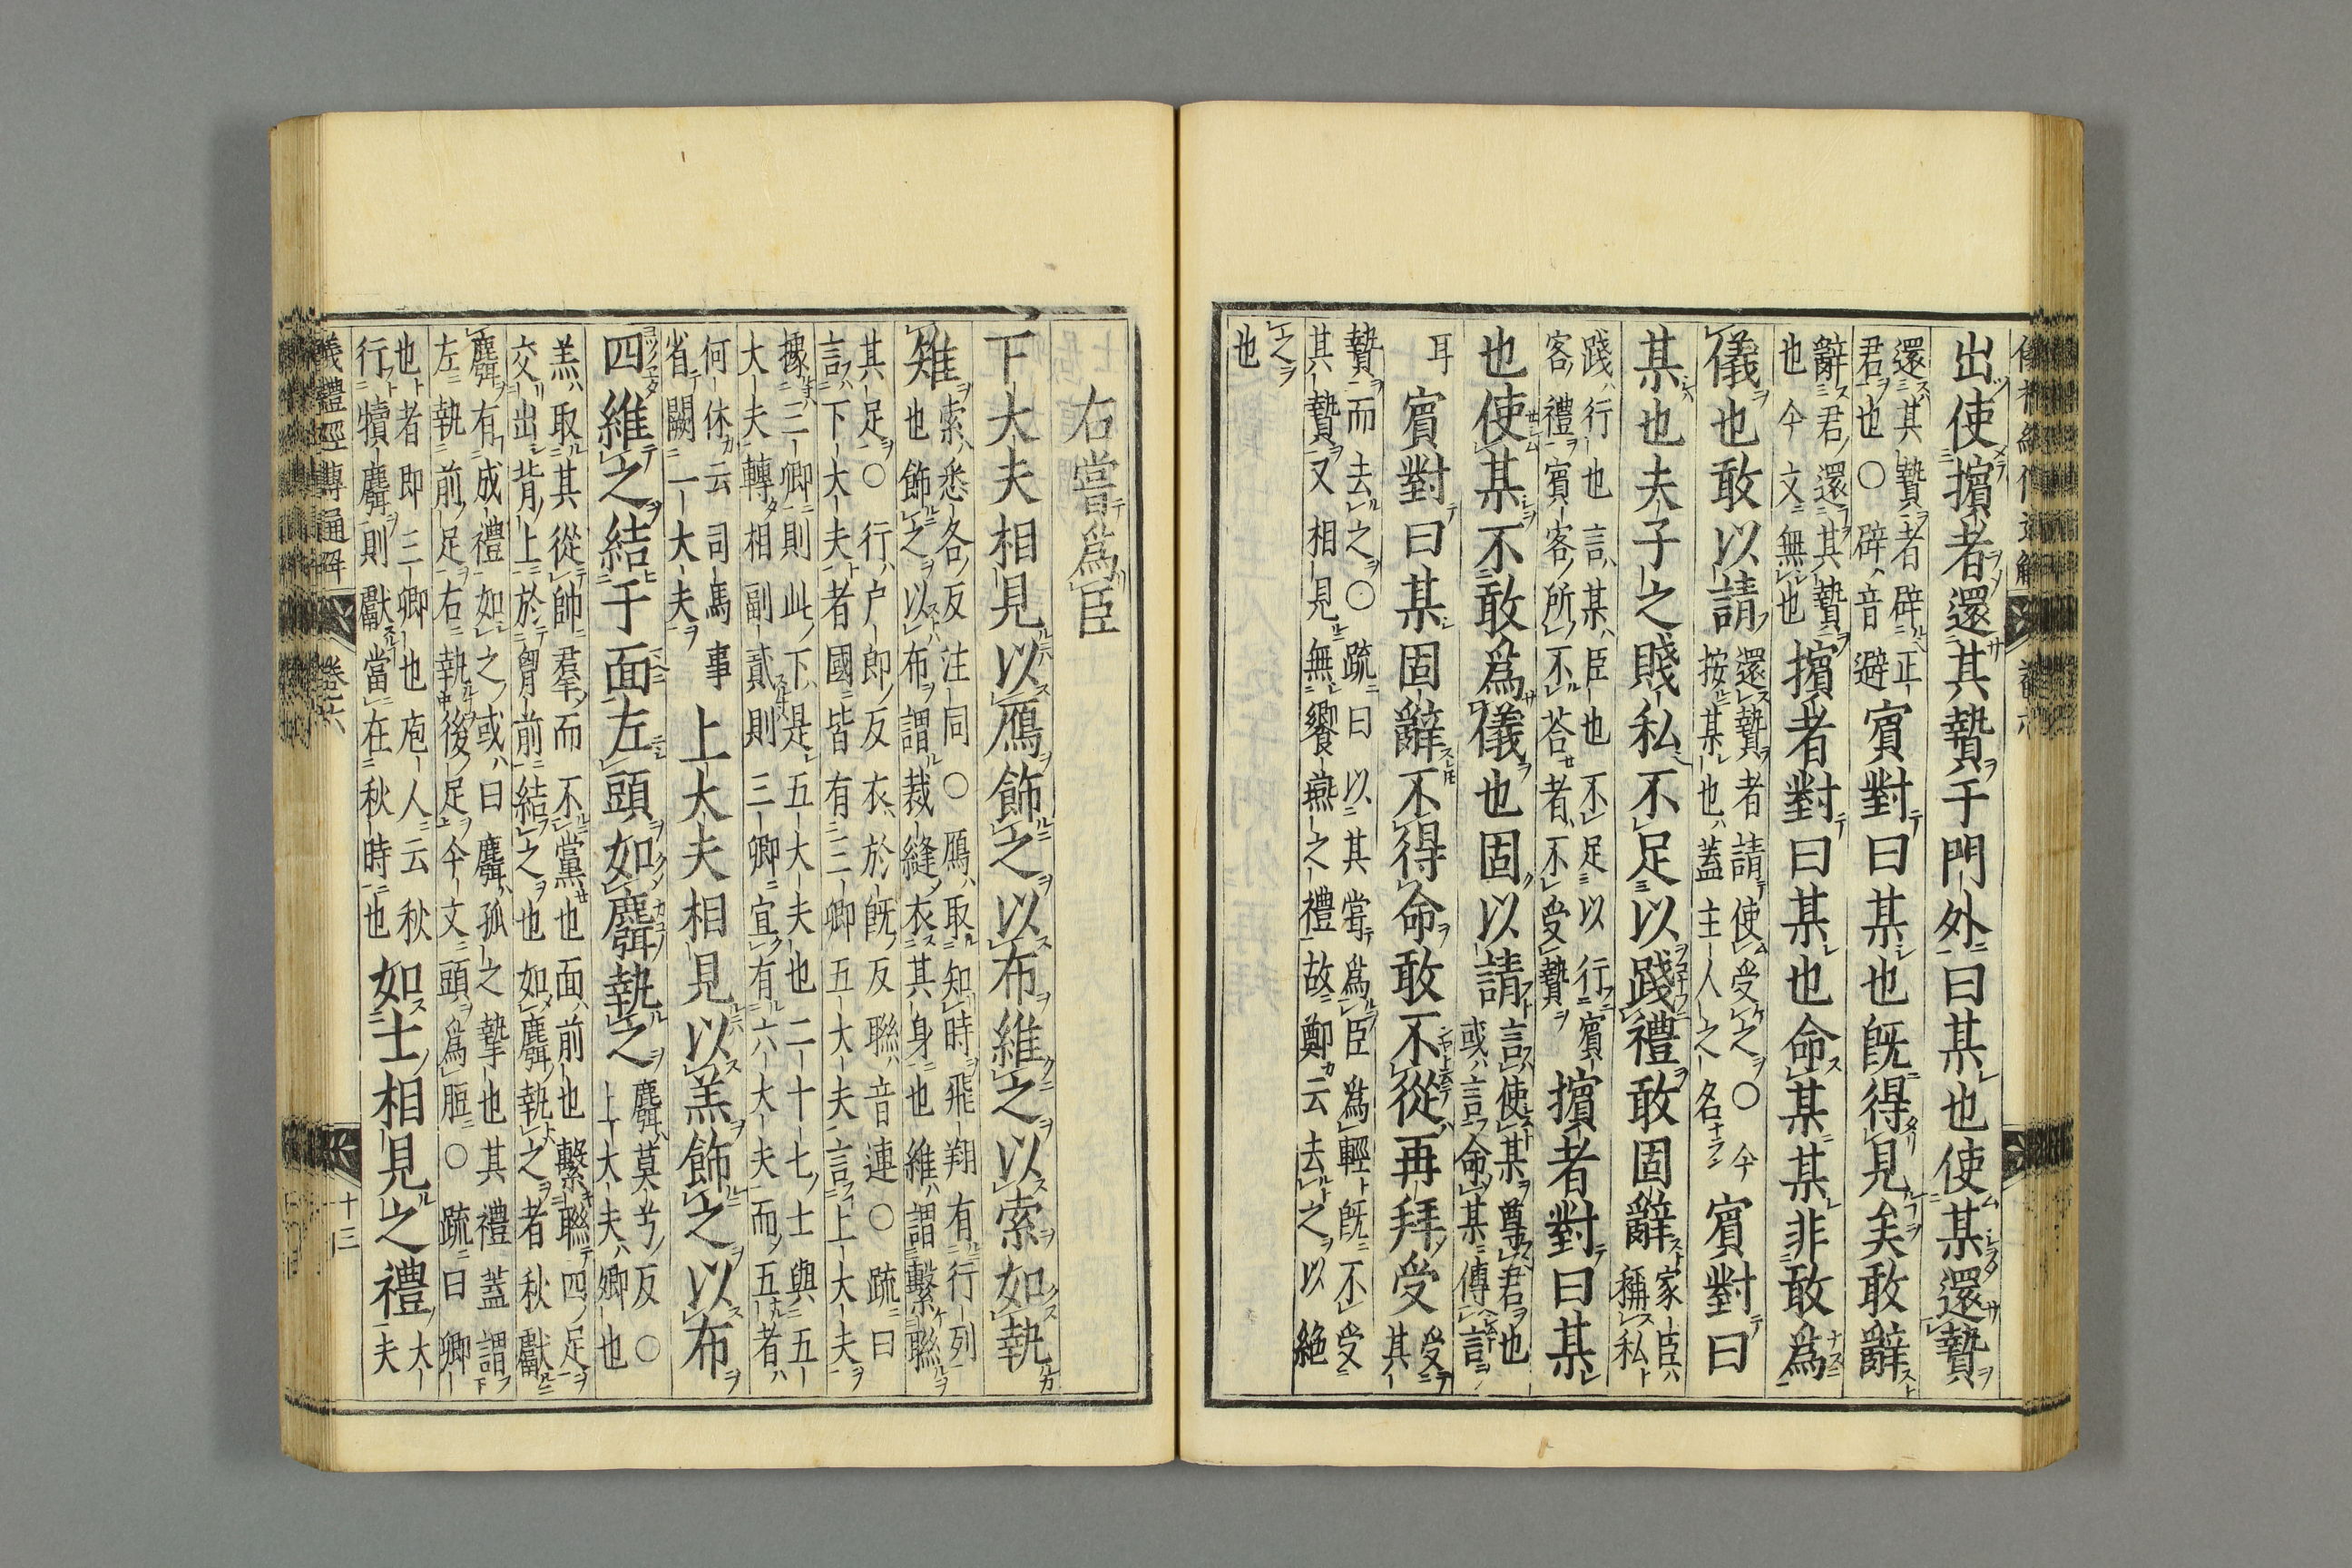 出使擯者還其贄于門外曰某也使某還贄
還其贄者辟正
君也○辟音避
賓對曰某也既得見矣敢辭
辭君還其贄
也今文無也
擯者對曰某也命某某非敢爲
儀也敢以請
還贄者請使受之○今
按某也蓋主人之名
賓對曰
某也夫子之賤私不足以踐禮敢固辭
家臣
稱私
踐行也言某臣也不足以行賓
客禮賓客所不荅者不受贄
擯者對曰某
也使某不敢爲儀也固以請
言使某尊君也
或言命某傳言
耳
賓對曰某固辭不得命敢不從再拜受
受
其
贄而去之○疏曰以其嘗爲臣爲輕既不受
其贄又相見無饗燕之禮故鄭云去之以絶
之
也
右當爲臣
下大夫相見以鴈飾之以布維之以索如執
雉
索悉各反注同○鴈取知時飛翔有行列
也飾之以布謂裁縫衣其身也維謂繫聯
其足○行户郎反衣於既反聯音連○疏曰
言下大夫者國皆有二卿五大夫言上大夫
據三卿則此下是五大夫也二十七士與五
大夫轉相副貳則三卿宜有六大夫而五者
何休云司馬事
省闕一大夫
上大夫相見以羔飾之以布
四維之結于面左頭如麛執之
麛莫兮反○
上大夫卿也
羔取其從帥羣而不黨也面前也繫聯四足
交出背上於胷前結之也如麛執之者秋獻
麛有成禮如之或曰麛孤之摯也其禮蓋謂
左執前足右執後足今文頭爲脰○疏曰卿
也者即三卿也庖人云秋
行犢麛則獻當在秋時也
如士相見之禮
大
夫
儀禮經傳通解 卷六 十三